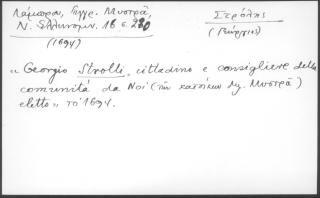 Λάμπρου, Ἔγγρ. Μυστρᾶ,
Ν. Ἑλληνομν. 16 σ. 280
(1694)
Στρόλης
(Γεώργιος)
« Georgio Strolli, cittadino e consigliere della
comunità da Noi (τῶν κατοίκων Μυστρᾶ)
eletto » τὸ 1694.